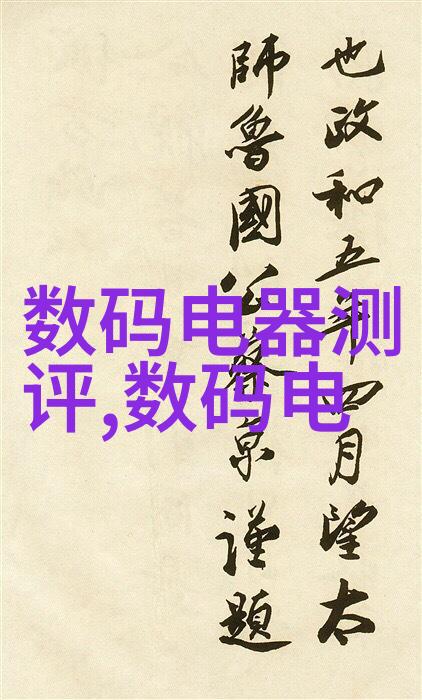 也政和五年四月望太
師魯國公蔡京謹題
数码电器测
评,数码电